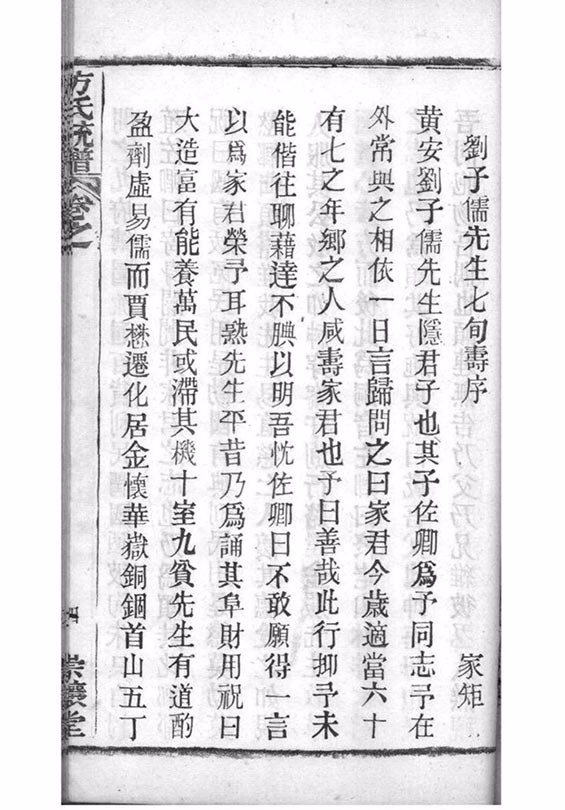 劉子儒先生七旬壽序 家矩
黄安劉子儒先生隱君子也其子佐卿爲予同志予在
外常與之相依一日言歸問之曰家君今歲適當六十
有七之年鄉之人咸壽家君也予曰善哉此行抑予未
能偕往聊藉達不腆以明吾忱佐卿曰不敢願得一言
以爲家君榮予耳熟先生平昔乃爲誦其阜財用祝曰
大造富有能養萬民或滯其機十室九貧先生有道酌
盈劑虛易儒而賈懋遷化居金懷華嶽銅錮首山五丁
方氏統譜 卷之
崇讓堂